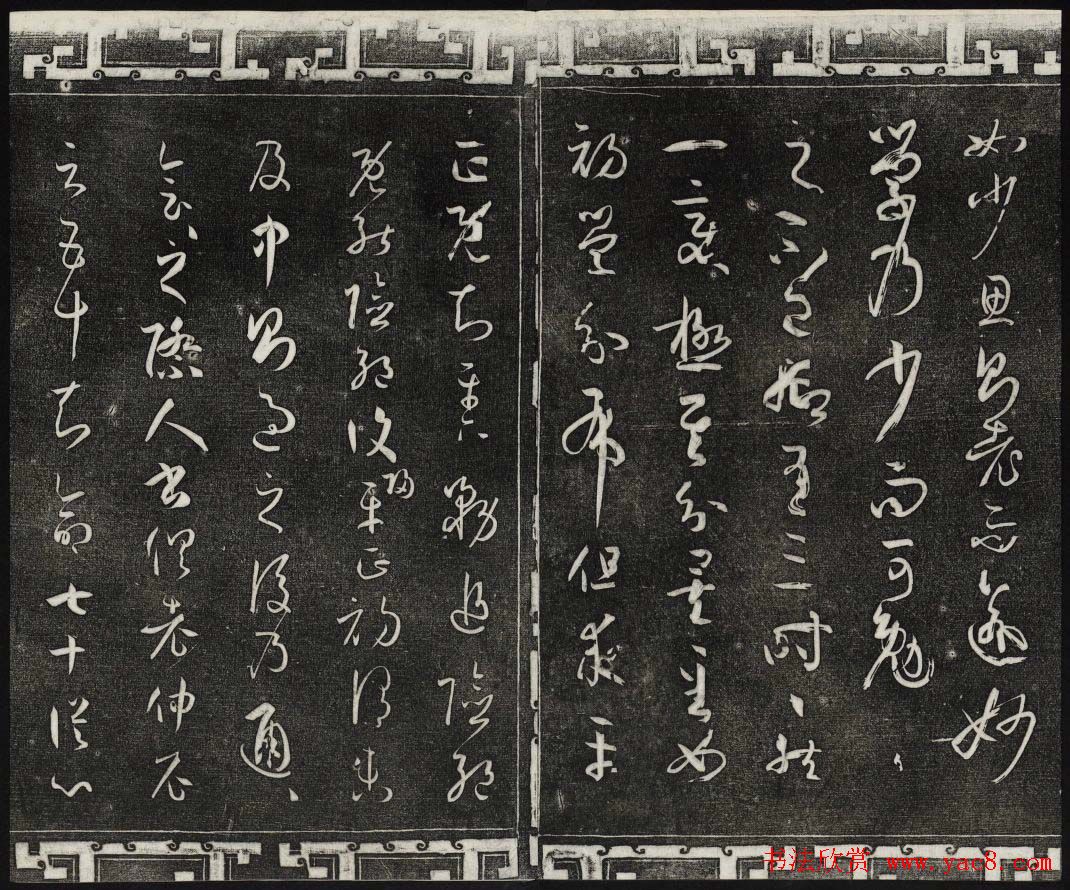 如少思則老而逾妙
學乃少而可勉〻
之不已抑有三時〻然
一變極其分矣至如
初學分布但求平
正既知平正務追險絕
既能險絕復歸平正初謂未
及中則過之後乃通〻
會〻之際人書俱老仲尼
云五十知命七十從心
书法欣赏 www.yac8.com